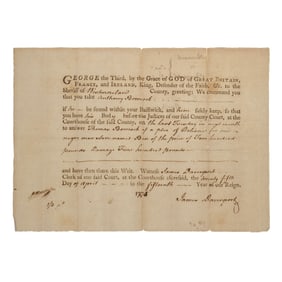 GEORGE the Third, by the Grace of GOD of GREAT BRITAIN,
FRANCE, and IRELAND, King, Defender of the Faith, &c. To
the Sheriff of Westmoreland County, greeting: We command you
that you take Anthony
If he be found within your Bailiwick, and him safely keep, so that
you have his Body before the Justices of our said County Court, at
the Courthouse of the said County, on the last Tuesday in next month
to answer Thomas of a plea of
negro man slave named Ben of the price of Two hundred
pounds Damage Two hundred pounds
And have then there this Writ. Witness James Davenport
Clerk of our said Court, at the Courthouse aforesaid, the twenty fifth
Day of April in the fifteenth Year of our Reign,
1775
James Davenport